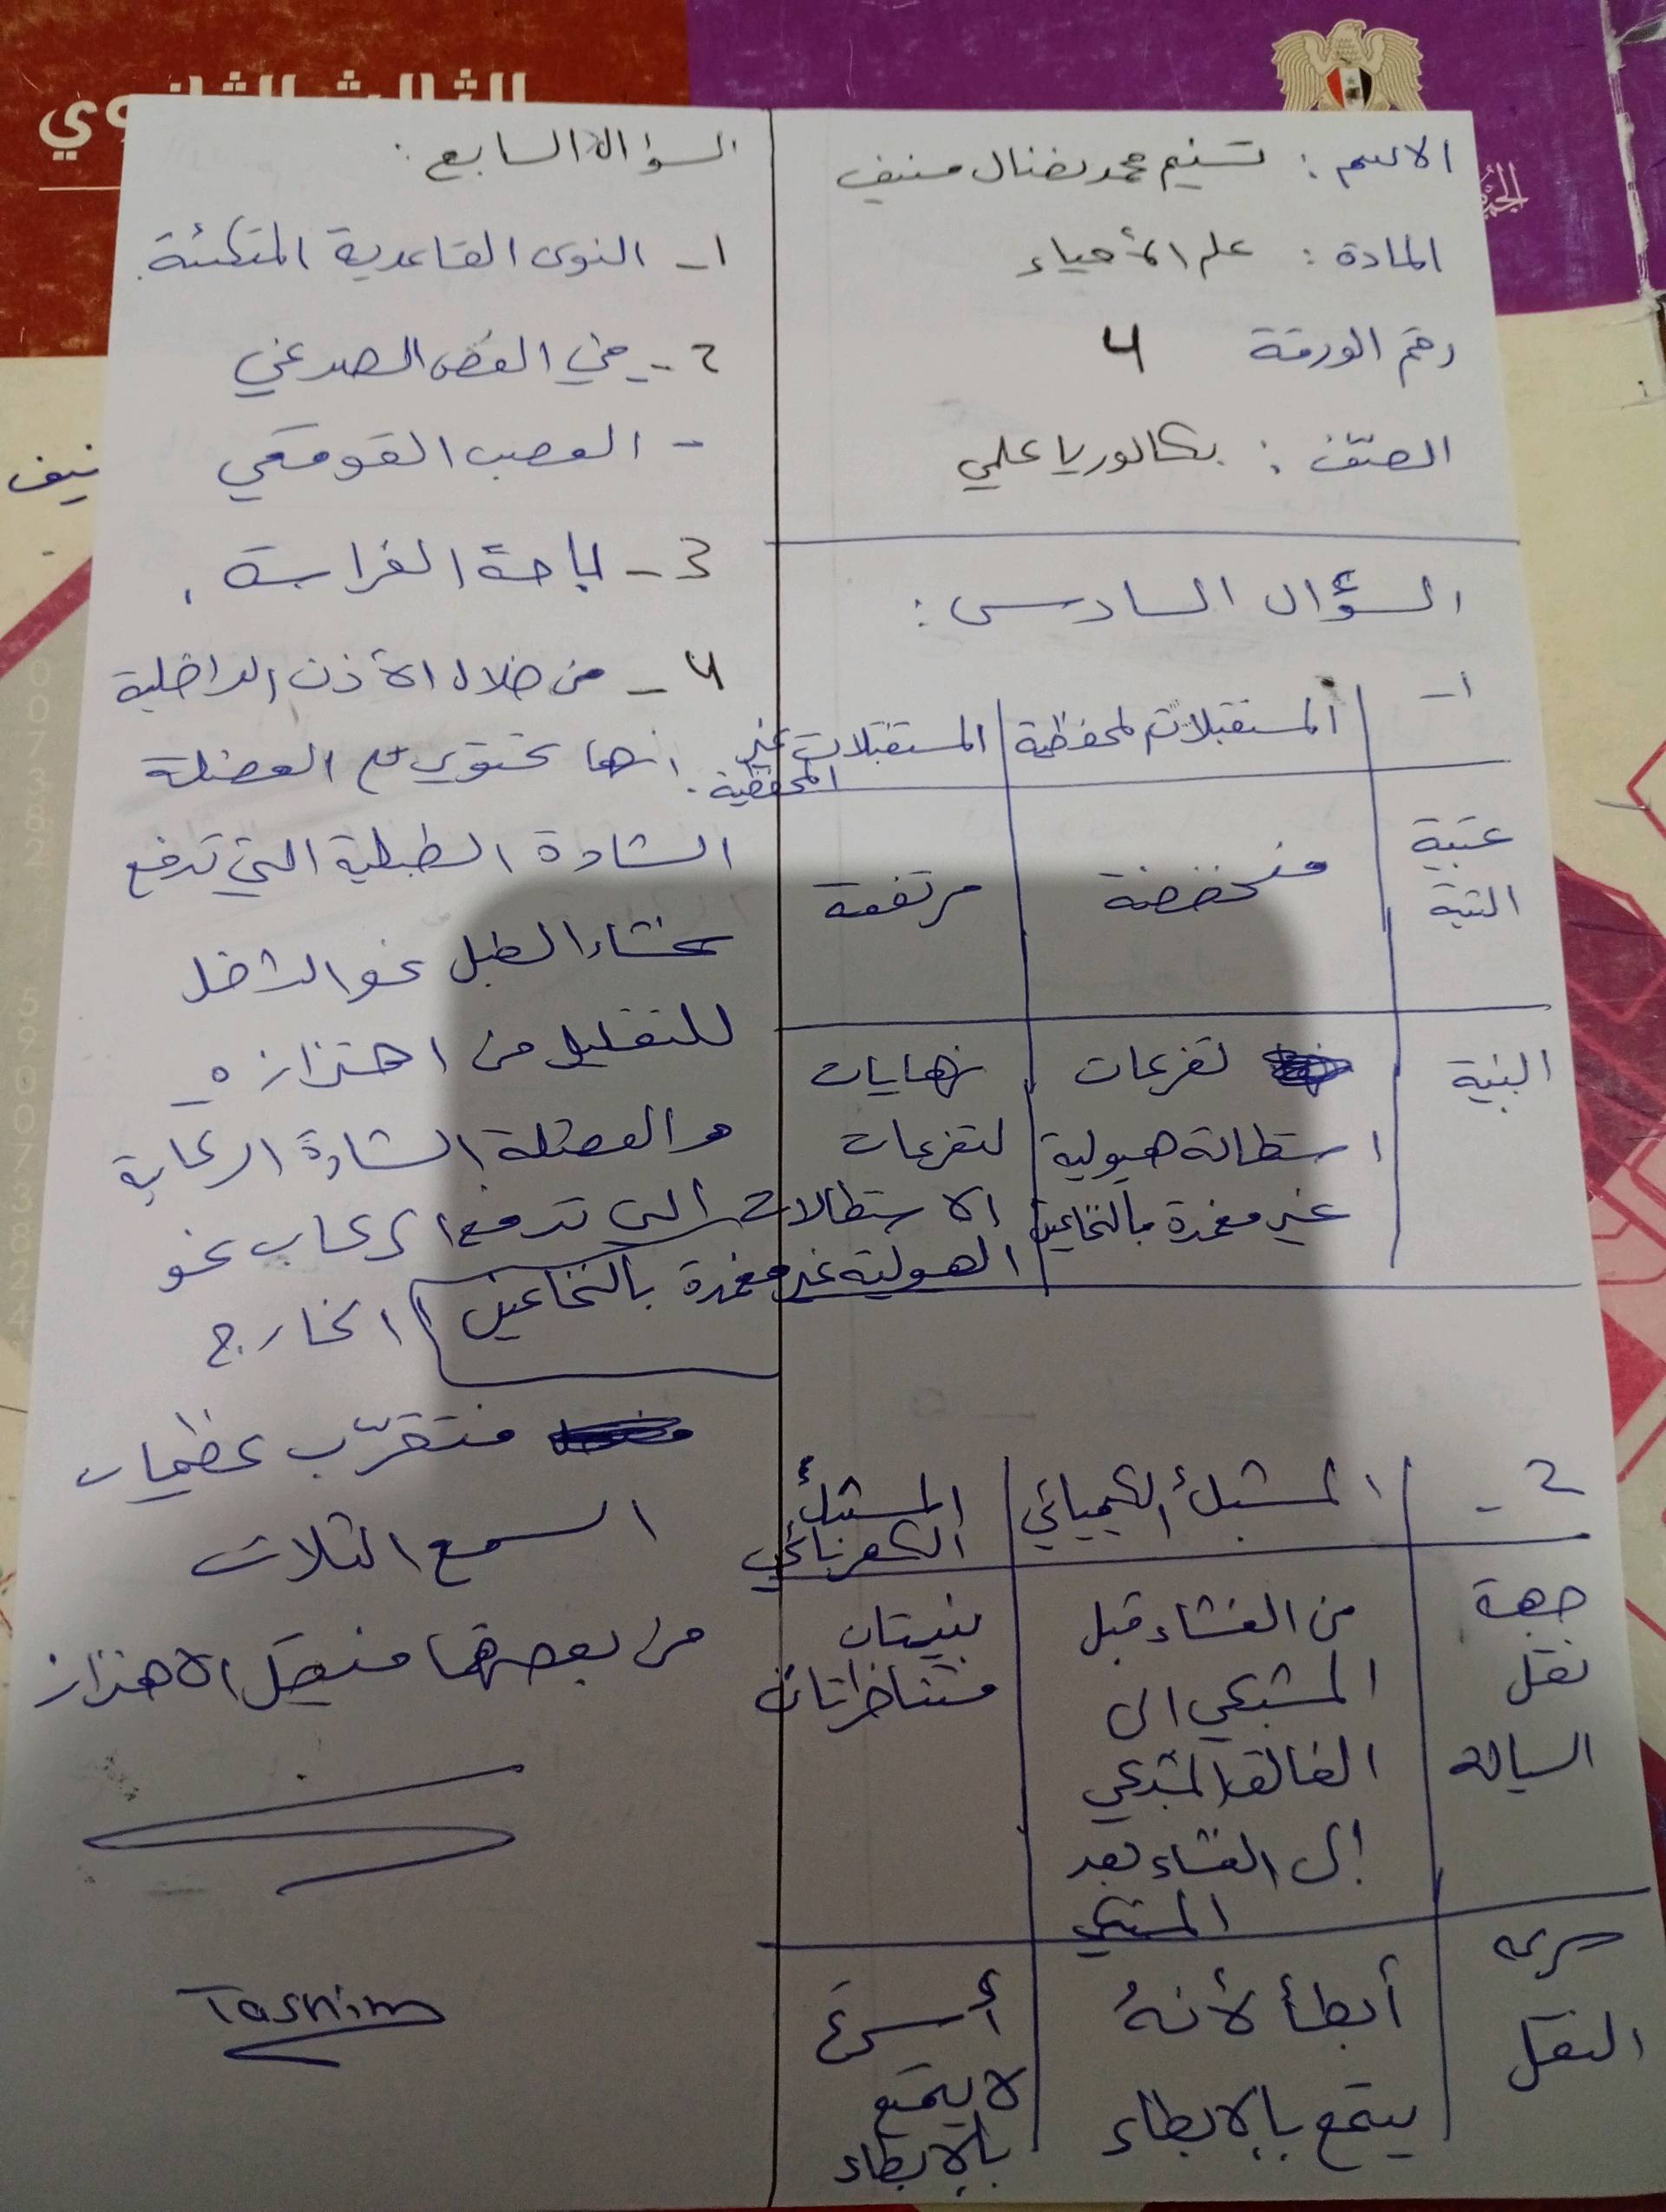 الثالث الثانوي
نيف
الاسم : تسنيم محمد نضال منيف
المادة : علم الأحياء
رقم الورقة 4
الصف : بكالوريا علمي
السؤال السادس :
1-
المستقبلات المحفظية
المستقبلات غير المحفظية
عتبة التنبيه
منخفضة
مرتفعة
البنية
تفرعات
استطالة هيولية
غير مغمدة بالنخاعين
نهايات
لتفرعات
الاستطالات
الهيولية غير مغمدة بالنخاعين
2-
المشبك الكيميائي
المشبك الكهربائي
جهة
نقل
السيالة
من الغشاء قبل
المشبكي الى
الفالق المشبكي
إلى الغشاء بعد
المشبكي
بنيتان
متناظرتان
سرعة
النقل
أبطأ لأنهُ
يتمتع بالإبطاء
أسرع
لا يتمتع
بالإبطاء
السؤال السابع :
1- النوى القاعدية المتكئة.
2- في الفص الصدغي
- العصب القوقعي
3- لباحة الفراسة .
4- من خلال الأذن الداخلية
انها تحتوي على العضلة
الشادة الطبلية التي تدفع
غشاء الطبل نحو الداخل
للتقليل من اهتزازه
والعضلة الشادة الركابية
التي تدفع الركاب نحو
الخارج
فتقرّب عظيمات
السمع الثلاث
من بعضها فيقل الاهتزاز
Tasnim